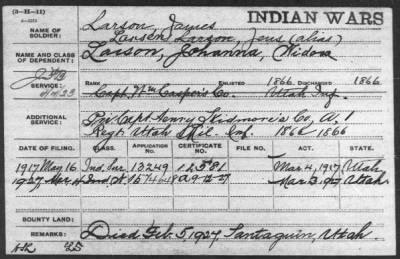 (3—H—11)
INDIAN WARS
NAME OF SOLDIER:
Larson, James
Larsen Larson, Jens (alias)
NAME AND CLASS OF DEPENDENT:
Larson, Johanna, Widow
SERVICE:
RANK ENLISTED 1866. DISCHARGED 1866
Capt Wm Casper's Co. Utah Inf.
ADDITIONAL SERVICE:
Pvt Capt Henry Skidmore's Co, A, 1
Regt Utah Mil. Inf. 1866 1866
DATE OF FILING. CLASS. APPLICATION NO. CERTIFICATE NO. FILE NO. ACT. STATE.
1917 May 16 Ind. Sur. 13249 12581 Mar 4, 1917 Utah
1927 Mar Ind. W. A 9-12-27 Mar 3, 1927 Utah
BOUNTY LAND:
REMARKS:
Died Feb. 5, 1927, Santaquin, Utah